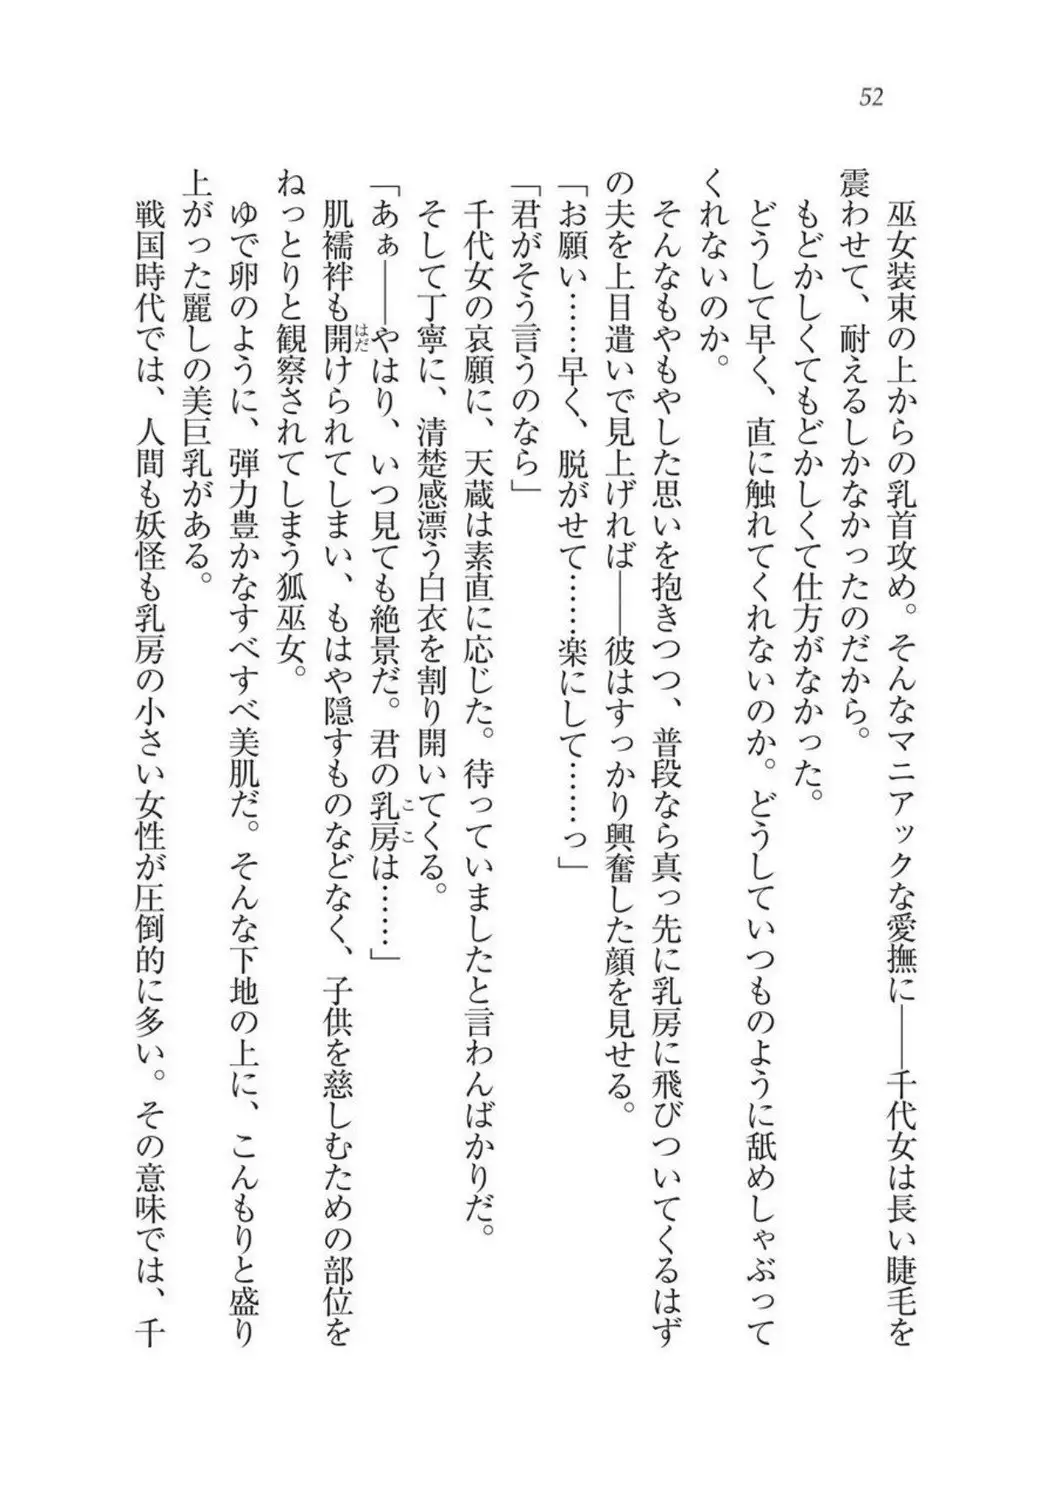 52
巫女装束の上からの乳首攻め。そんなマニアックな愛撫に――千代女は長い睫毛を
震わせて、耐えるしかなかったのだから。
もどかしくてもどかしくて仕方がなかった。
どうして早く、直に触れてくれないのか。どうしていつものように舐めしゃぶって
くれないのか。
そんなもやもやした思いを抱きつつ、普段なら真っ先に乳房に飛びついてくるはず
の夫を上目遣いで見上げれば――彼はすっかり興奮した顔を見せる。
「お願い……早く、脱がせて……楽にして……っ」
「君がそう言うのなら」
千代女の哀願に、天蔵は素直に応じた。待っていましたと言わんばかりだ。
そして丁寧に、清楚感漂う白衣を割り開いてくる。
「あぁ――やはり、いつ見ても絶景だ。君の乳房ここは……」
肌襦袢も開はだけられてしまい、もはや隠すものなどなく、子供を慈しむための部位を
ねっとりと観察されてしまう狐巫女。
ゆで卵のように、弾力豊かなすべすべ美肌だ。そんな下地の上に、こんもりと盛り
上がった麗しの美巨乳がある。
戦国時代では、人間も妖怪も乳房の小さい女性が圧倒的に多い。その意味では、千